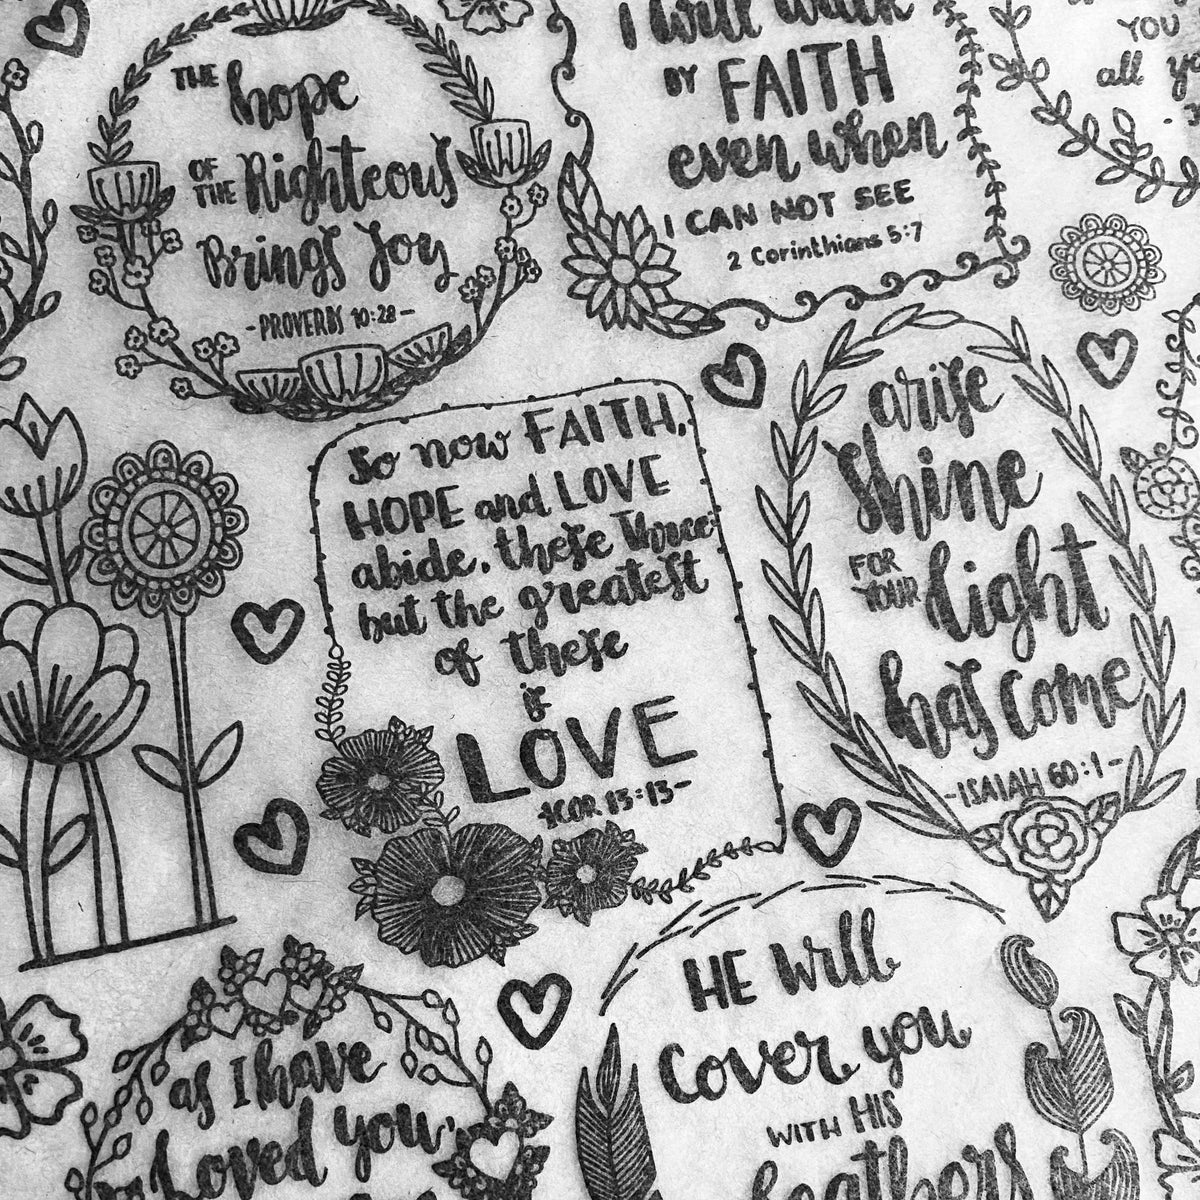 THE hope
OF THE Righteous
Brings Joy
-PROVERBS 10:28-
I will walk
BY FAITH
even when
I CAN NOT SEE
2 Corinthians 5:7
YOU
all
So now FAITH,
HOPE and LOVE
abide, these three
but the greatest
of these
is
LOVE
1COR 13:13-
arise
Shine
FOR YOUR light
has come
-ISAIAH 60:1-
as I have
Loved you,
HE will
Cover you
WITH HIS
feathers